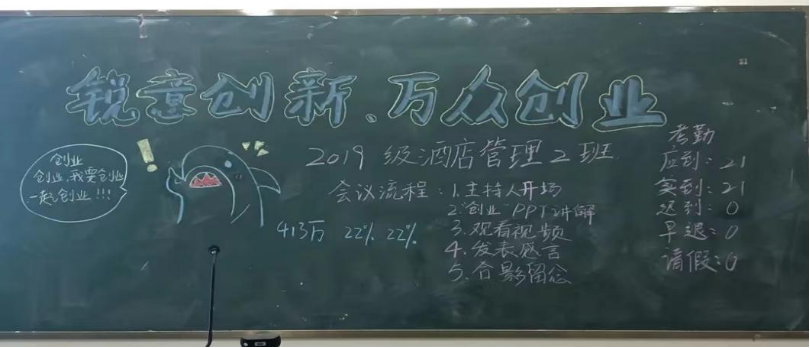 锐意创新、万众创业
2019级酒店管理2班
会议流程：1.主持人开场
2.创业PPT讲解
3.观看视频
4.发表感言
5.合影留念
413万 22% 22%
创业
创业,我要创业
一起创业!!!
考勤
应到：21
实到：21
迟到：0
早退：0
请假：0